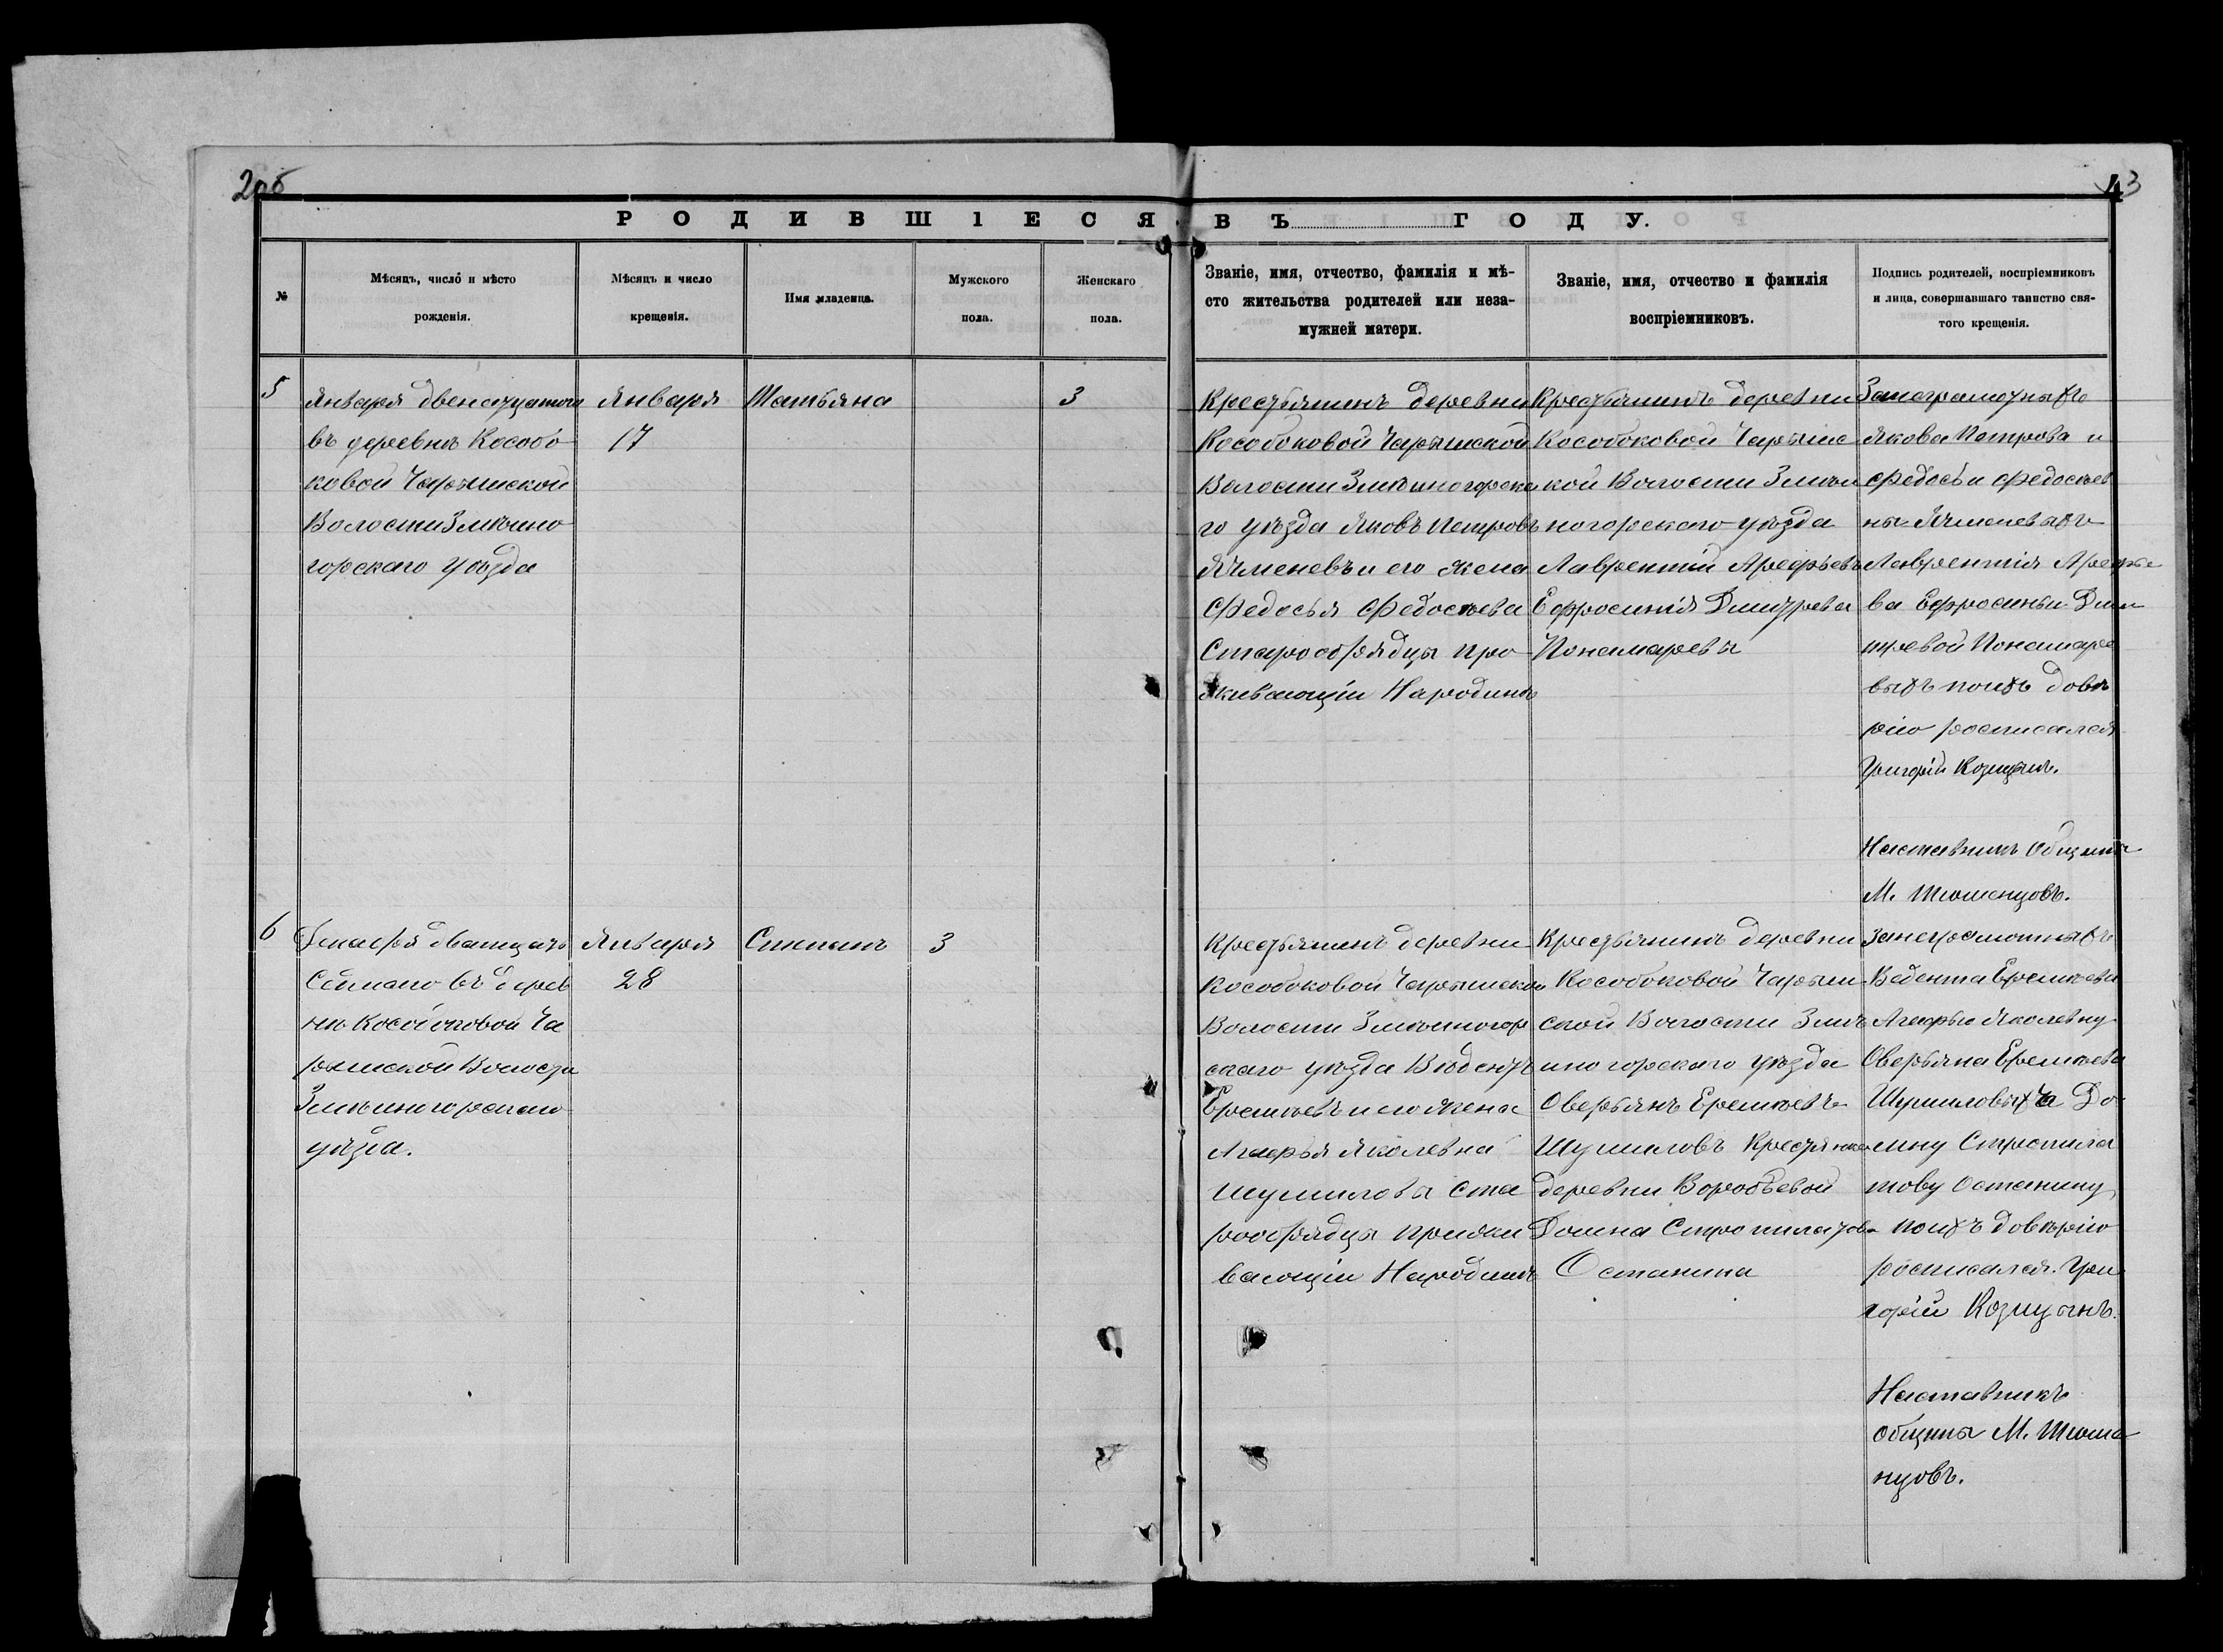 2об
3
РОДИВШІЕСЯ ВЪ ГОДУ.
№
Мѣсяцъ, число и мѣсто
рожденія.
Мѣсяцъ и число
крещенія.
Имя младенца.
Мужского
пола.
Женскаго
пола.
Званіе, имя, отчество, фамилія и мѣ-
сто жительства родителей или неза-
мужней матери.
Званіе, имя, отчество и фамилія
воспріемниковъ.
Подпись родителей, воспріемниковъ
и лица, совершавшаго таинство свя-
того крещенія.
5
Января двенацатого
въ деревнѣ Кособо
ковой Чарышской
Волости Змѣино
горскаго уѣзда
Января
17
Татьяна
3
Крестьянинъ деревни
Кособоковой Чарышской
Волости Змѣиногорска
го уѣзда Яковъ Петровъ
Ячменевъ и его жена
Федосья Федосѣева
Старообрядцы про
живающіи Народинѣ
Крестьянинъ деревни
Кособоковой Чарышс
кой Волости Змѣи
ногорскаго уѣзда
Лаврентій Арефьевъ
Ефросинія Дмитрева
Пономаревы
Занеграмотныхъ
Якова Петрова и
Федосьи Федосѣев
ны Ячменевыхъ
Лаврентія Арефье
ва Ефросиньи Дми
тревой Пономаре
выхъ поихъ довѣ
рію росписался
Григорій Козицынъ.
Наставникъ Общины
М. Тюменцовъ.
6
Декабря дватцать
Седмаго въ дерев
нѣ Кособоковой Ча
рышской Волости
Змѣиногорскаго
уѣзда.
Января
28
Степанъ
3
Крестьянинъ деревни
Кособоковой Чарышской
Волости Змѣиногор
скаго уѣзда Веденѣтъ
Еремѣевъ и его жена
Агафья Яколевна
Шумиловы Ста
рообрядцы прожи
вающіи Народинѣ
Крестьянинъ деревни
Кособоковой Чарыш
ской Волости Змѣ
иногорскаго уѣзда
Оверьянъ Еремѣевъ
Шумиловъ Крестьянка
деревни Воробьевой
Домна Стротилатова
Останина
Занеграмотныхъ
Ведента Еремѣева
Агафью Яколевну
Оверьяна Еремѣева
Шумиловыхъ а До
мну Стротила
тову Останину
поихъ довѣрію
росписался. Гри
горій Козицынъ.
Наставникъ
Общины М. Тюме
нцовъ.